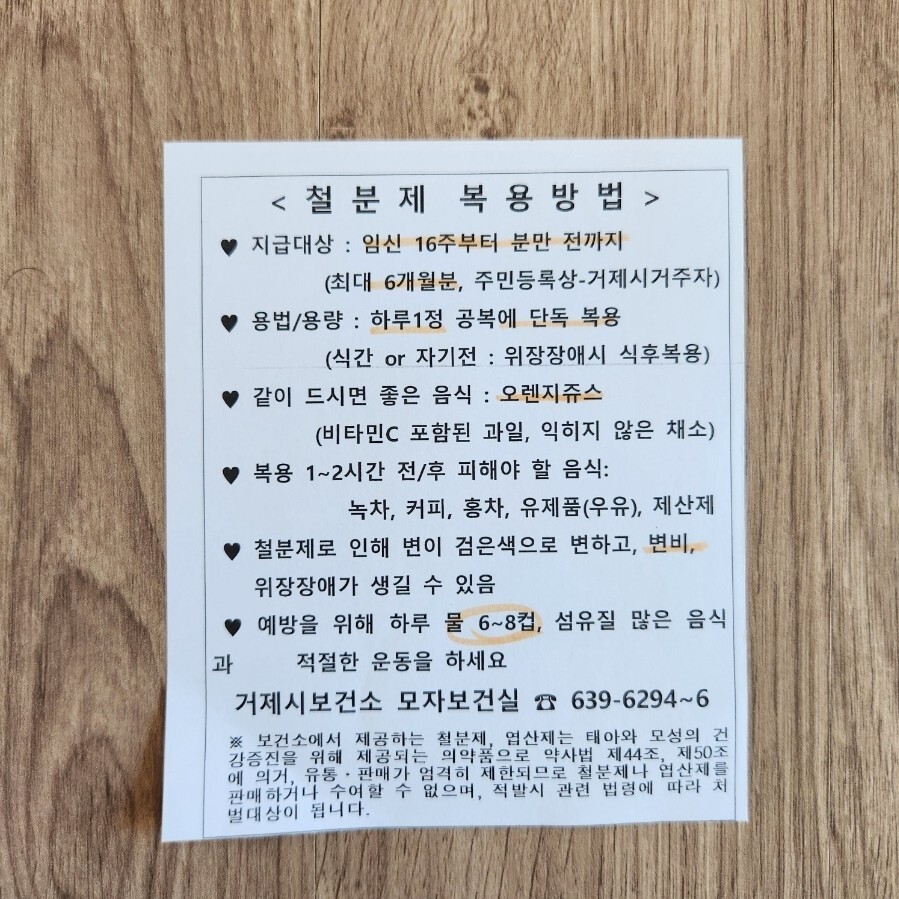 < 철 분 제 복 용 방 법 >
♥ 지급대상 : 임신 16주부터 분만 전까지
(최대 6개월분, 주민등록상-거제시거주자)
♥ 용법/용량 : 하루1정 공복에 단독 복용
(식간 or 자기전 : 위장장애시 식후복용)
♥ 같이 드시면 좋은 음식 : 오렌지쥬스
(비타민C 포함된 과일, 익히지 않은 채소)
♥ 복용 1~2시간 전/후 피해야 할 음식:
녹차, 커피, 홍차, 유제품(우유), 제산제
♥ 철분제로 인해 변이 검은색으로 변하고, 변비,
위장장애가 생길 수 있음
♥ 예방을 위해 하루 물 6~8컵, 섬유질 많은 음식
과 적절한 운동을 하세요
거제시보건소 모자보건실 ☎ 639-6294~6
※ 보건소에서 제공하는 철분제, 엽산제는 태아와 모성의 건
강증진을 위해 제공되는 의약품으로 약사법 제44조, 제50조
에 의거, 유통·판매가 엄격히 제한되므로 철분제나 엽산제를
판매하거나 수여할 수 없으며, 적발시 관련 법령에 따라 처
벌대상이 됩니다.